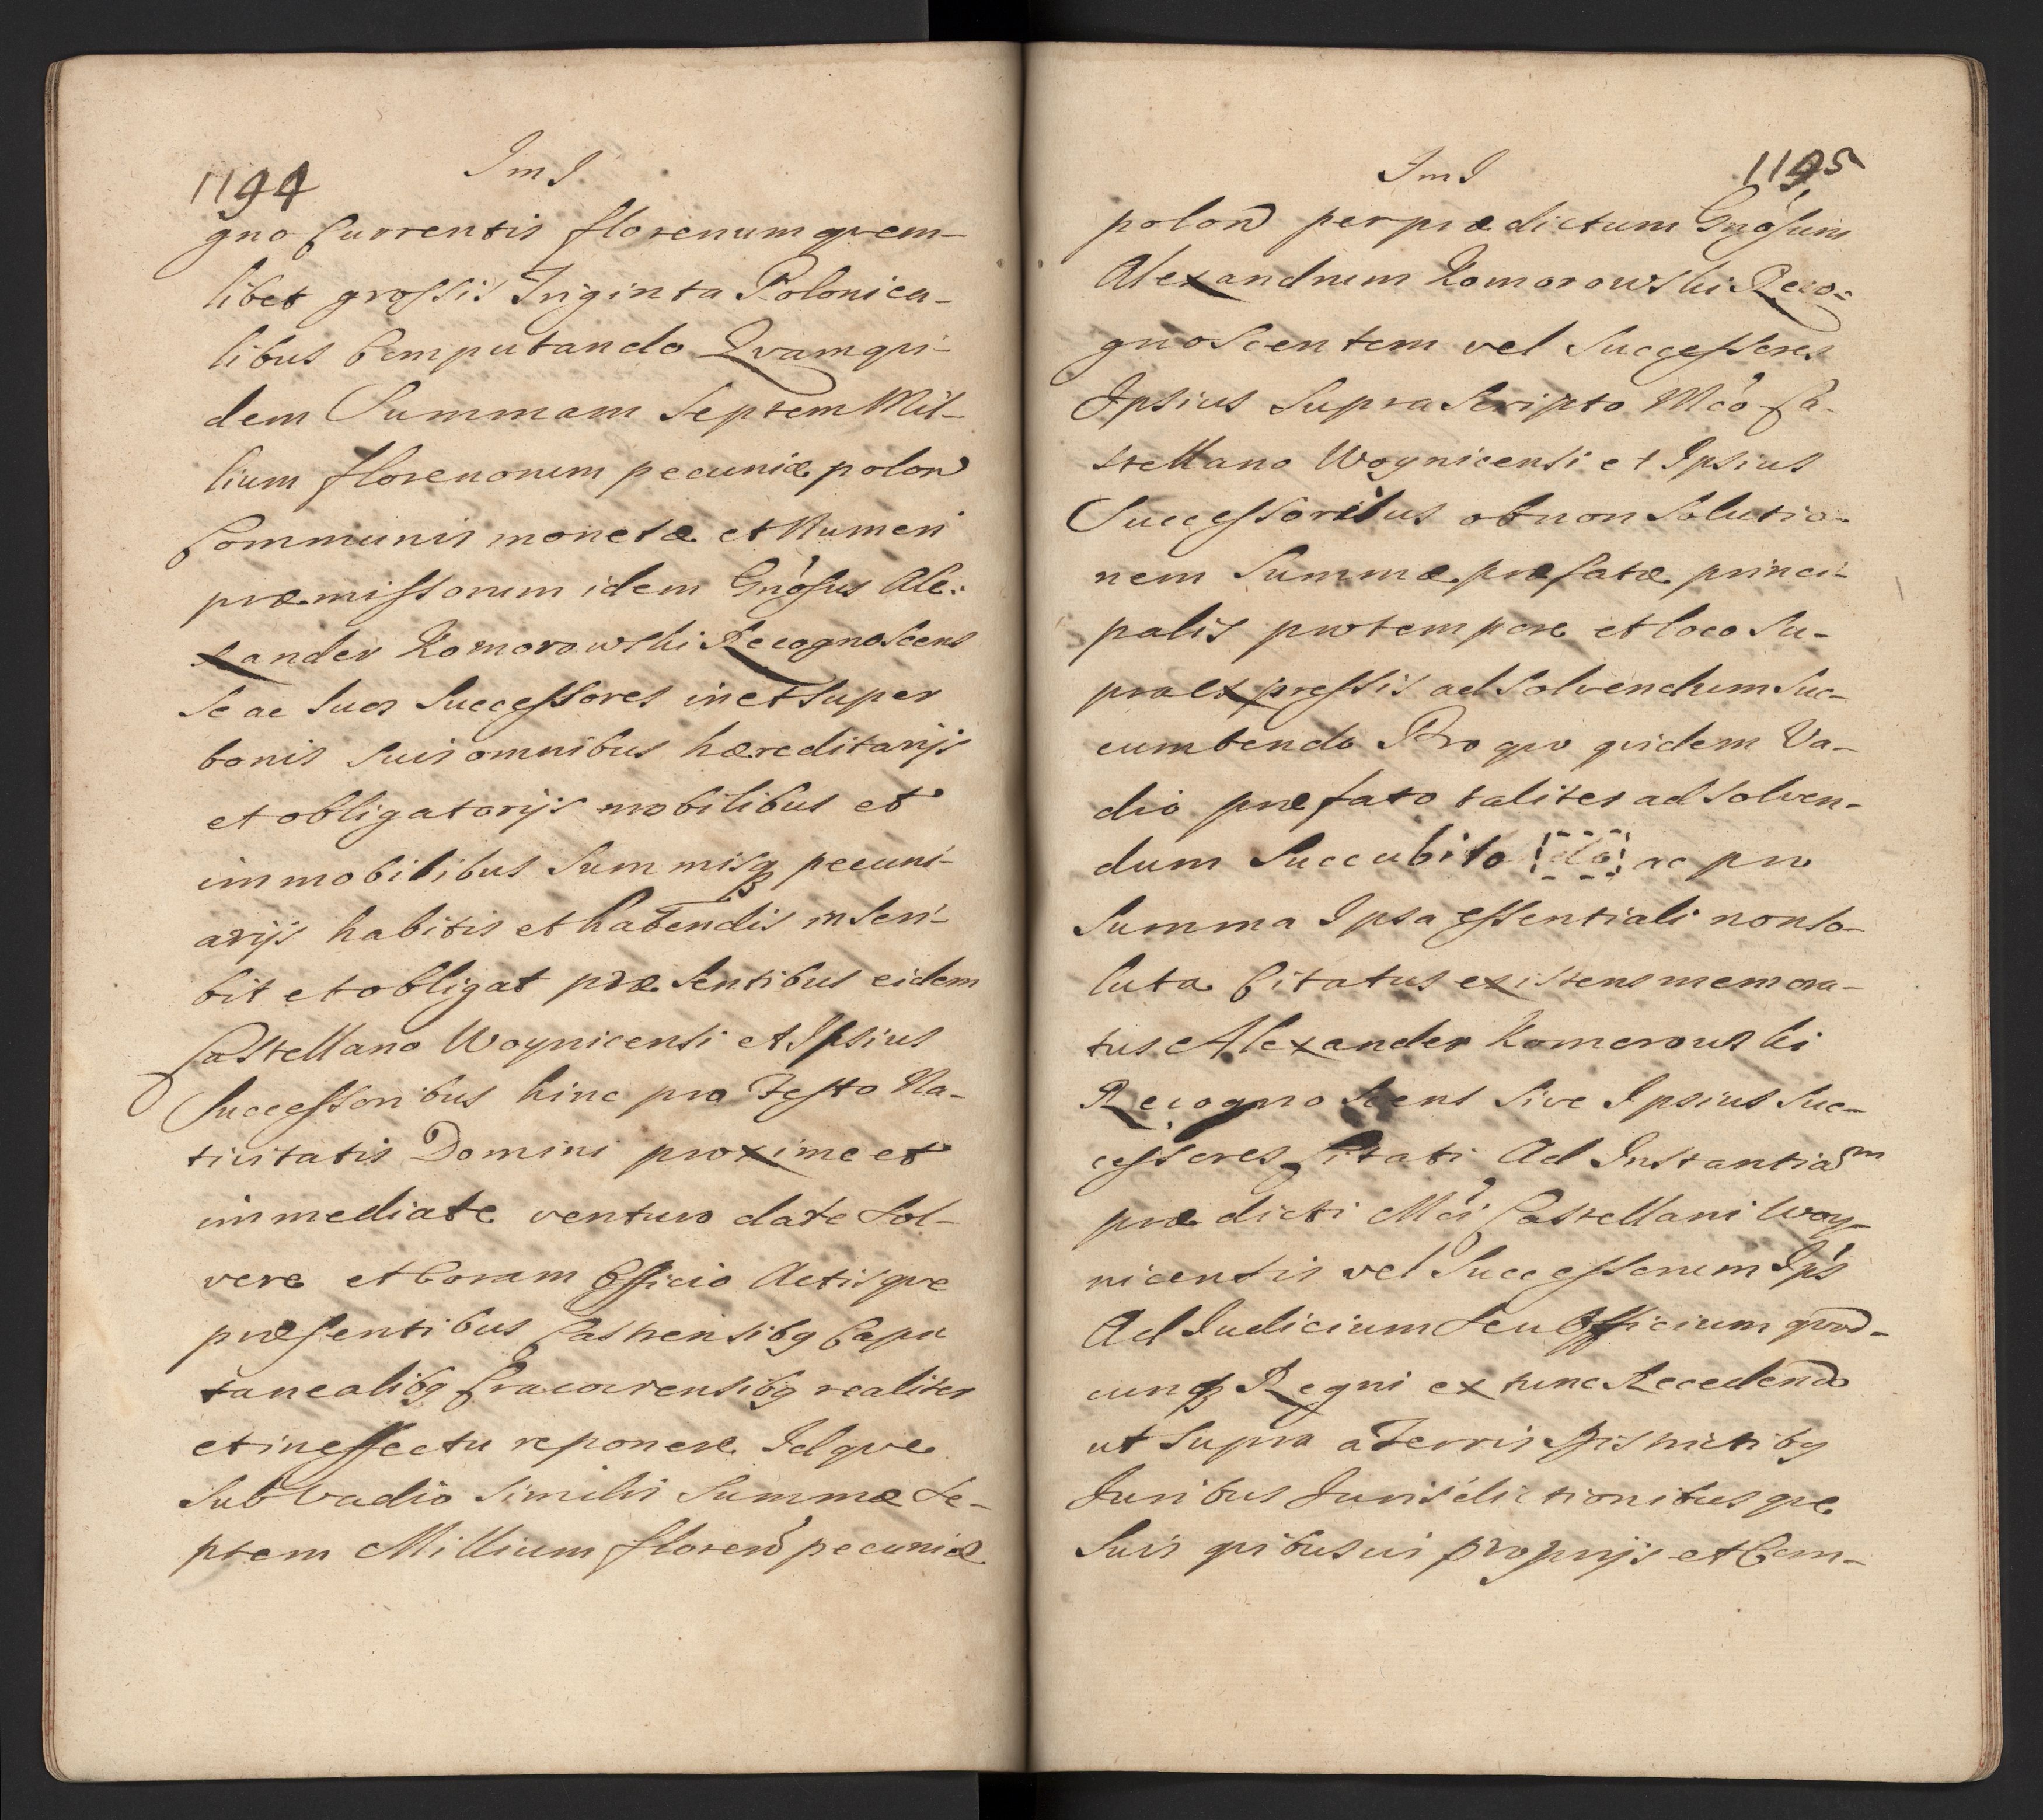 1194
ImI
gno Currentis florenum qvem-
libet grossis Triginta Polonica-
libus Computando Qvamqvi-
dem Summam Septem Mil-
lium florenorum pecuniæ polon
Communis monetæ et Numeri
præmissorum idem Gnosus Ale:
xander Komorowski Recognoscens
Se ac Suos Successores in et super
bonis Suis omnibus hæreditarijs
et obligatorijs mobilibus et
immobilibus Summisq pecuni-
arijs habitis et habendis inscri-
bit et obligat præsentibus eidem
Castellano Woynicensi et Ipsius
Successoribus hinc pro Festo Na-
tivitatis Domini proxime et
immediate venturo dare Sol-
vere et Coram Officio Actisqve
præsentibus Castrensibg Capi
tanealibg Cracoviensibg realiter
et in effectu reponere Idqve
Sub Vadio Similis Summæ Se-
ptem Millium floren pecuniæ
ImI
1195
polon per prædictum Gnosum
Alexandrum Komorowski Reco:
gnoscentem vel Successores
Ipsius Suprascripto Mco Ca-
stellano Woynicensi et Ipsius
Successoribus ob non Solutio-
nem Summæ præfatæ princi-
palis pro tempore et loco Su-
praexpressis ad Solvendum Suc-
cumbendo Pro qvo qvidem Va-
dio præfato taliter ad Solven-
dum Succubito do ac pro
Summa Ipsa essentiali non so-
luta Citatus existens memora-
tus Alexander Komorowski
Recognoscens Sive Ipsius Suc-
cessores Citati Ad Instantiam
prædicti Mci Castellani Woy-
nicensis vel Successorum Ips
Ad Iudicium Seu Officium qvod-
cunq Regni extunc Recedendo
ut Supra a Terris Districtibg
Juribus Jurisdictionibusqve
Suis qvibusvis proprijs et Com-